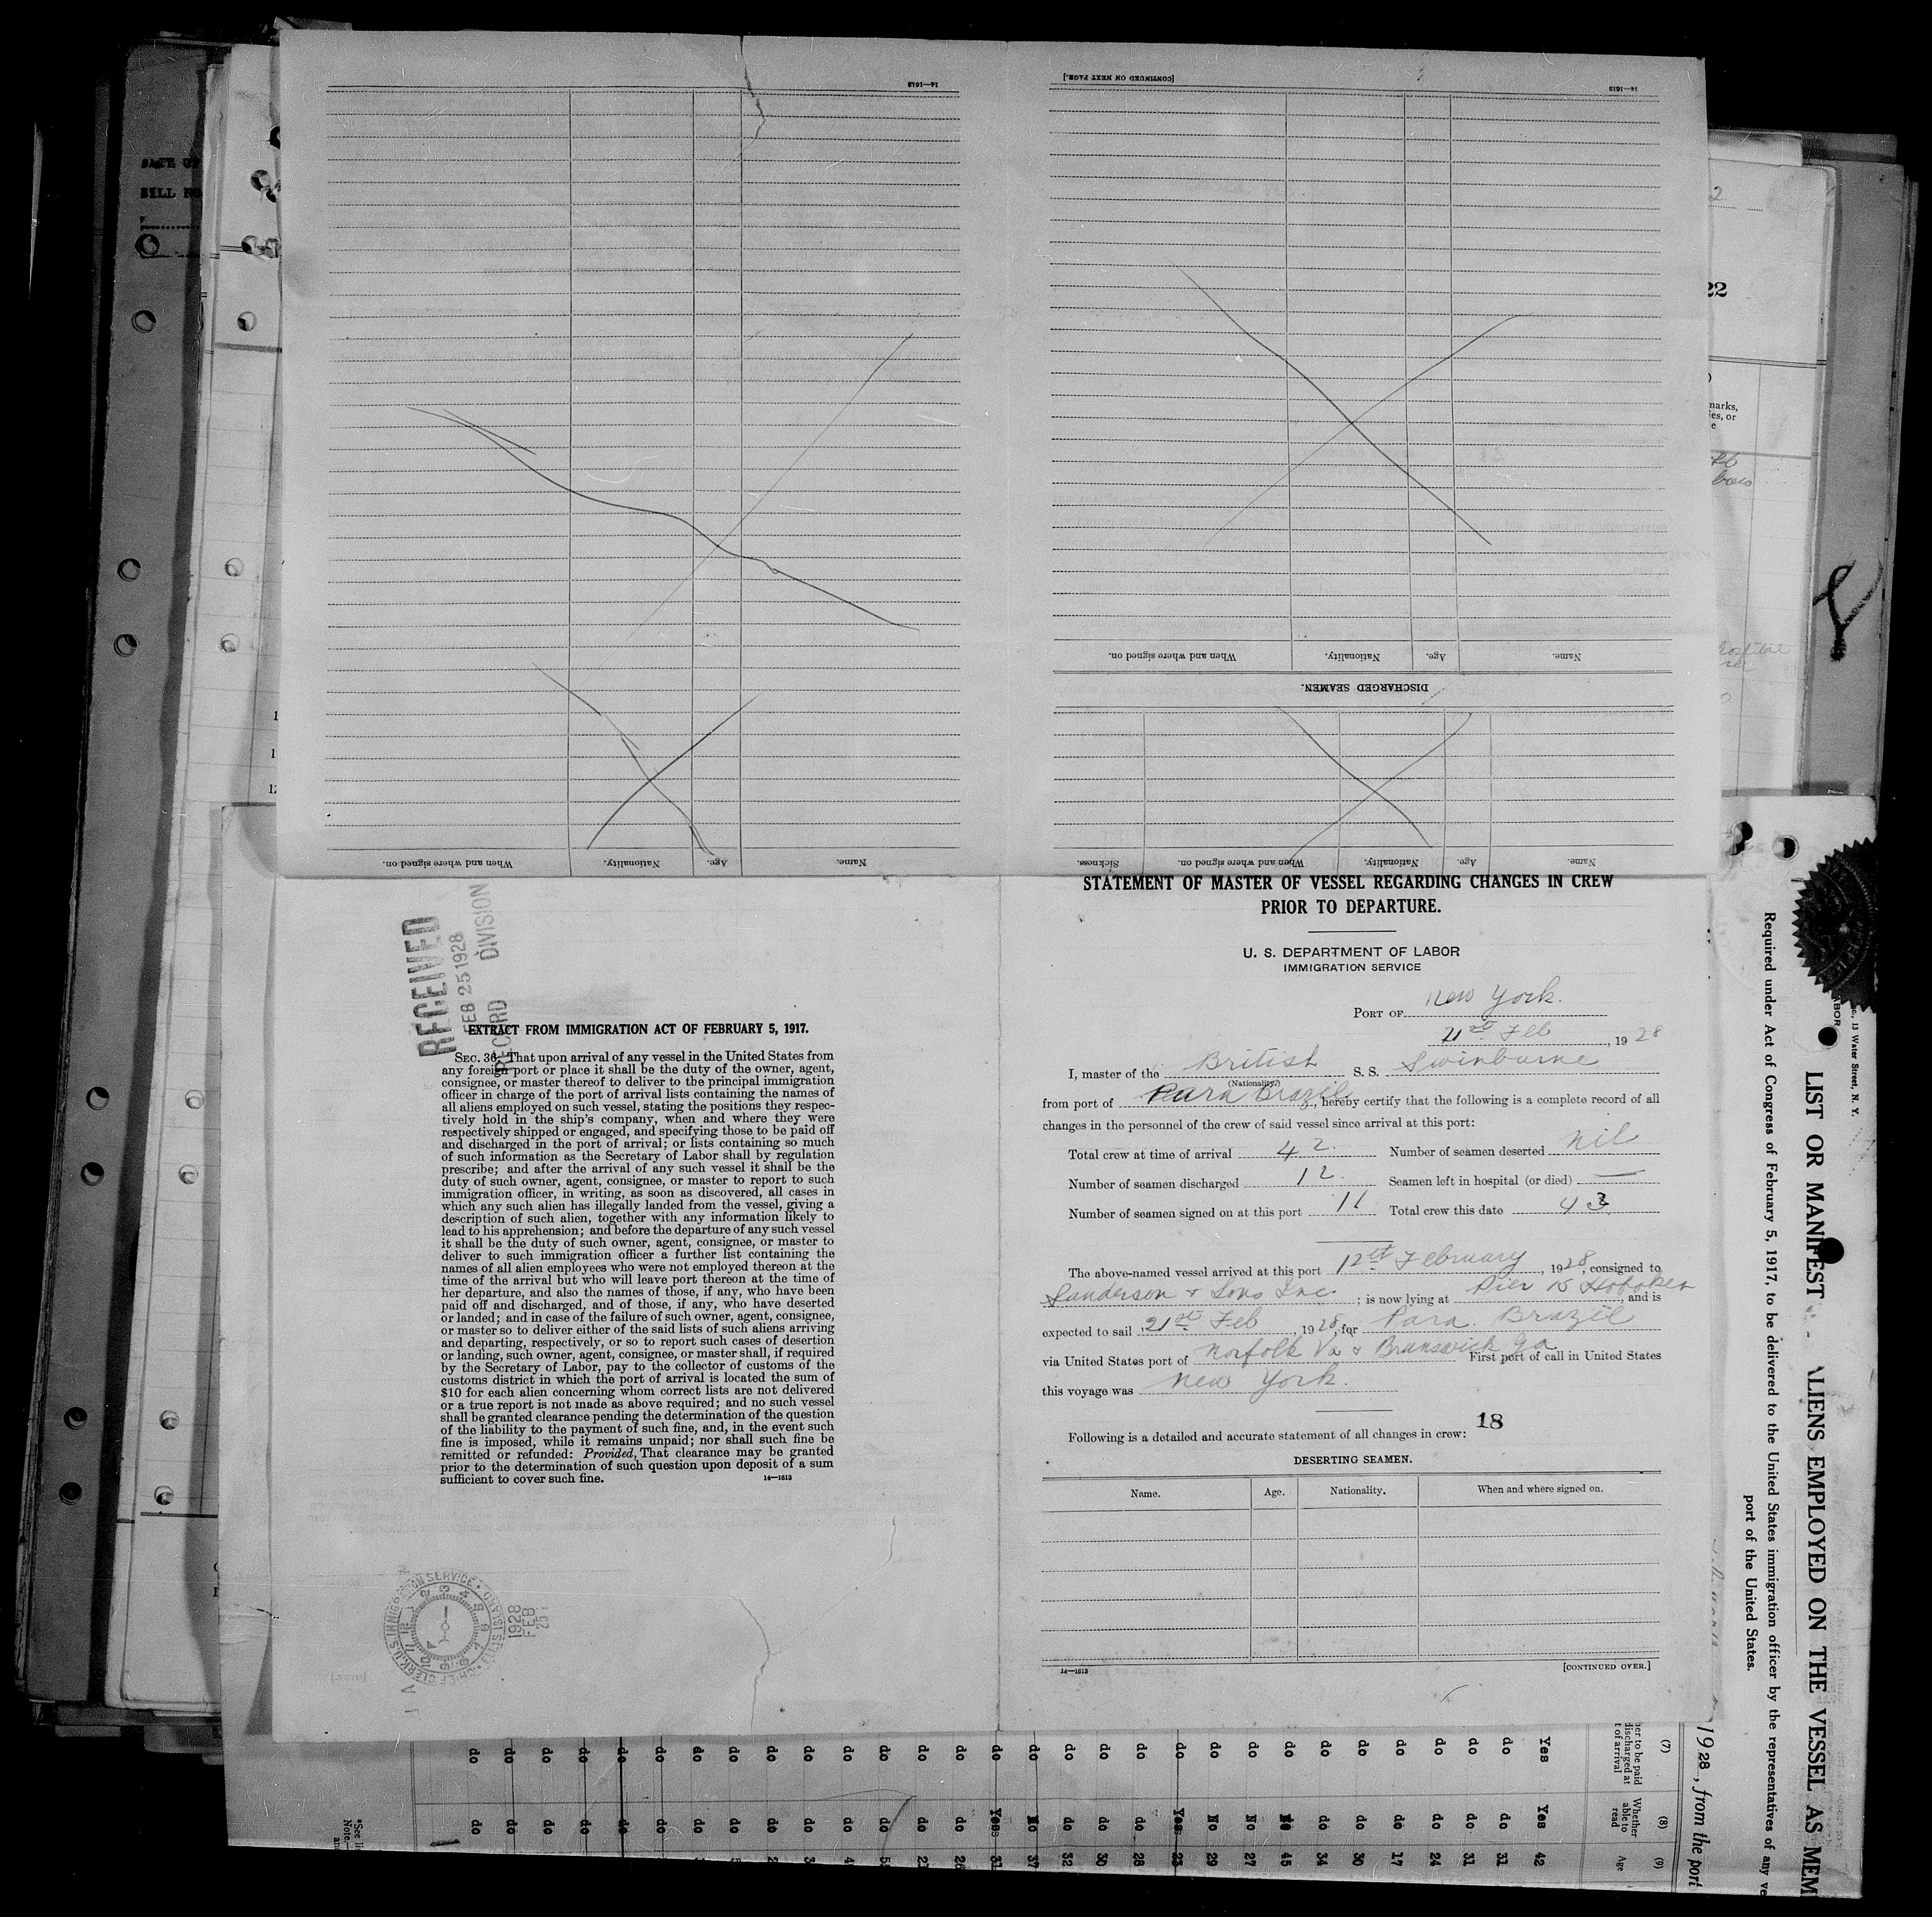 [CONTINUED ON NEXT PAGE.]
14—1613
14—1613
When and where signed on.
Nationality.
Age.
Name.
DISCHARGED SEAMEN.
When and where signed on.
Nationality.
Age.
Name.
Sickness.
When and where signed on.
Nationality.
Age.
Name.
RECEIVED
FEB 25 1928
RECORD DIVISION
EXTRACT FROM IMMIGRATION ACT OF FEBRUARY 5, 1917.
SEC. 36. That upon arrival of any vessel in the United States from
any foreign port or place it shall be the duty of the owner, agent,
consignee, or master thereof to deliver to the principal immigration
officer in charge of the port of arrival lists containing the names of
all aliens employed on such vessel, stating the positions they respec-
tively hold in the ship's company, when and where they were
respectively shipped or engaged, and specifying those to be paid off
and discharged in the port of arrival; or lists containing so much
of such information as the Secretary of Labor shall by regulation
prescribe; and after the arrival of any such vessel it shall be the
duty of such owner, agent, consignee, or master to report to such
immigration officer, in writing, as soon as discovered, all cases in
which any such alien has illegally landed from the vessel, giving a
description of such alien, together with any information likely to
lead to his apprehension; and before the departure of any such vessel
it shall be the duty of such owner, agent, consignee, or master to
deliver to such immigration officer a further list containing the
names of all alien employees who were not employed thereon at the
time of the arrival but who will leave port thereon at the time of
her departure, and also the names of those, if any, who have been
paid off and discharged, and of those, if any, who have deserted
or landed; and in case of the failure of such owner, agent, consignee,
or master so to deliver either of the said lists of such aliens arriving
and departing, respectively, or so to report such cases of desertion
or landing, such owner, agent, consignee, or master shall, if required
by the Secretary of Labor, pay to the collector of customs of the
customs district in which the port of arrival is located the sum of
$10 for each alien concerning whom correct lists are not delivered
or a true report is not made as above required; and no such vessel
shall be granted clearance pending the determination of the question
of the liability to the payment of such fine, and, in the event such
fine is imposed, while it remains unpaid; nor shall such fine be
remitted or refunded: Provided, That clearance may be granted
prior to the determination of such question upon deposit of a sum
sufficient to cover such fine.
14—1613
1928
FEB
25
STATEMENT OF MASTER OF VESSEL REGARDING CHANGES IN CREW
PRIOR TO DEPARTURE.
U. S. DEPARTMENT OF LABOR
IMMIGRATION SERVICE
PORT OF New York.
21st Feb, 1928
I, master of the British S. S. Swinburne
(Nationality.)
from port of Para Brazil, hereby certify that the following is a complete record of all
changes in the personnel of the crew of said vessel since arrival at this port:
Total crew at time of arrival 42. Number of seamen deserted nil
Number of seamen discharged 12. Seamen left in hospital (or died) —
Number of seamen signed on at this port 11 Total crew this date 43.
The above-named vessel arrived at this port 12th February, 1928, consigned to
Sanderson & Sons Inc; is now lying at Pier 15 Hoboken, and is
expected to sail 21st Feb, 1928, for Para. Brazil
via United States port of Norfolk Va & Brunswick Ga First port of call in United States
this voyage was New York.
18
Following is a detailed and accurate statement of all changes in crew:
DESERTING SEAMEN.
Name. Age. Nationality. When and where signed on.
14—1613
[CONTINUED OVER.]
LIST OR MANIFEST ALIENS EMPLOYED ON THE VESSEL AS MEM
Required under Act of Congress of February 5, 1917, to be delivered to the United States immigration officer by the representatives of any ve
port of the United States.
13 Water Street, N. Y.
1928, from the port
(7) (8) (9)
Whether able to read
Age
Yes Yes 42
do do 31
do do 31
do do 24
do do 17
do do 30
do do 34
do No 45
do No 27
do No 29
do Yes 23
do do 28
do do 30
do do 32
do No 37
do Yes 31
do do 26